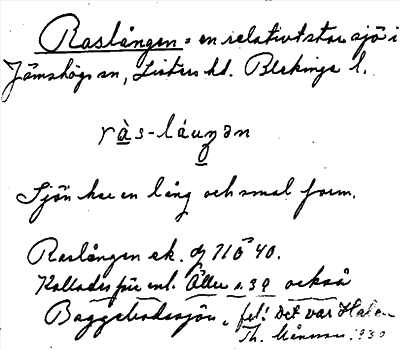 Raslången = en relativt stor sjö i
Jämshögs sn, Listers hd. Blekinge l.
ràs-láuŋən
Sjön har en lång och smal form.
Raslången ek. 71 Ö 40.
Kallades förr enl. s. 39 också
Baggebodasjön, fel! Det var Halen
Th. 1930